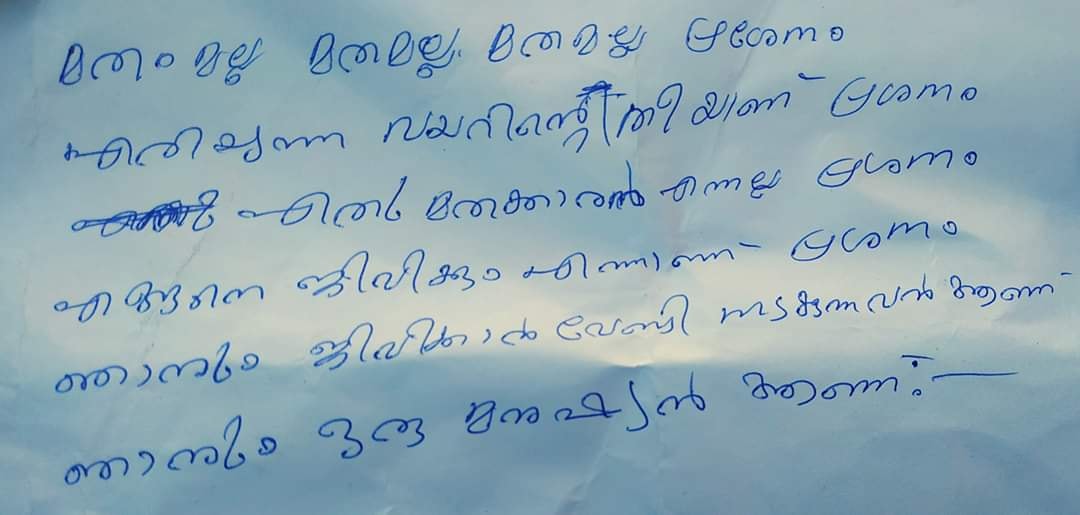 മതം മല്ല മതമല്ല മതമല്ല പ്രശനം
എരിയുന്ന വയറിൻ്റെ തീയാണ് പ്രശനം
എതു മതക്കാരൻ എന്നല്ല പ്രശനം
എങ്ങനെ ജീവിക്കും എന്നാണ് പ്രശനം
ഞാനും ജീവിക്കാൻ വേണ്ടി നടക്കുന്നവൻ ആണ്
ഞാനും ഒരു മനുഷ്യൻ ആണ്:—